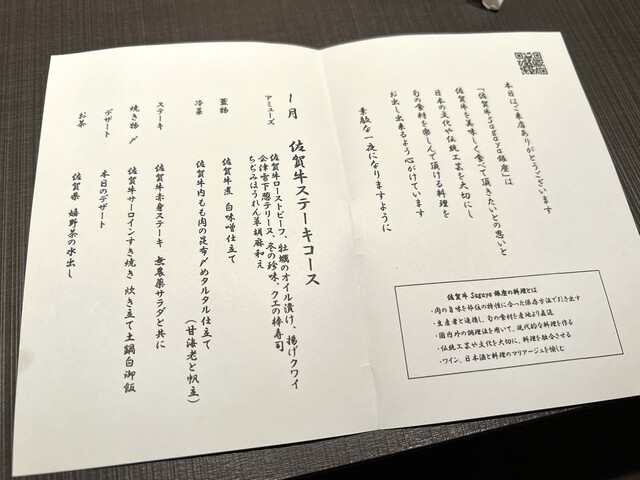 本日はご来店ありがとうございます
「佐賀牛Sagaya銀座」は
佐賀牛を美味しく食べて頂きたいとの思いと
日本の文化や伝統工芸を大切にし
旬の食材を楽しんで頂ける料理を
お出し出来るよう心がけています
素敵な一夜になりますように
佐賀牛 Sagaya 銀座の料理とは
・肉の旨味を部位の特性に合った保存方法で引き出す
・生産者と連携し、旬の食材を産地より直送
・国内外の調理法を用いて、現代的な料理を作る
・伝統工芸や文化を大切に、料理を融合させる
・ワイン、日本酒と料理のマリアージュを愉しむ
1月 佐賀牛ステーキコース
アミューズ 佐賀牛ローストビーフ、牡蠣のオイル漬け、揚げクワイ
会津雪下葱テリーヌ、冬の珍味、クエの棒寿司
ちぢみほうれん草胡麻和え
蓋物 佐賀牛煮 白味噌仕立て
冷菜 佐賀牛内もも肉の昆布〆めタルタル仕立て
(甘海老と帆立)
ステーキ 佐賀牛赤身ステーキ 無農薬サラダと共に
焼き物 〆 佐賀牛サーロインすき焼き 炊き立て土鍋白御飯
デザート 本日のデザート
お茶 佐賀県 嬉野茶の水出し